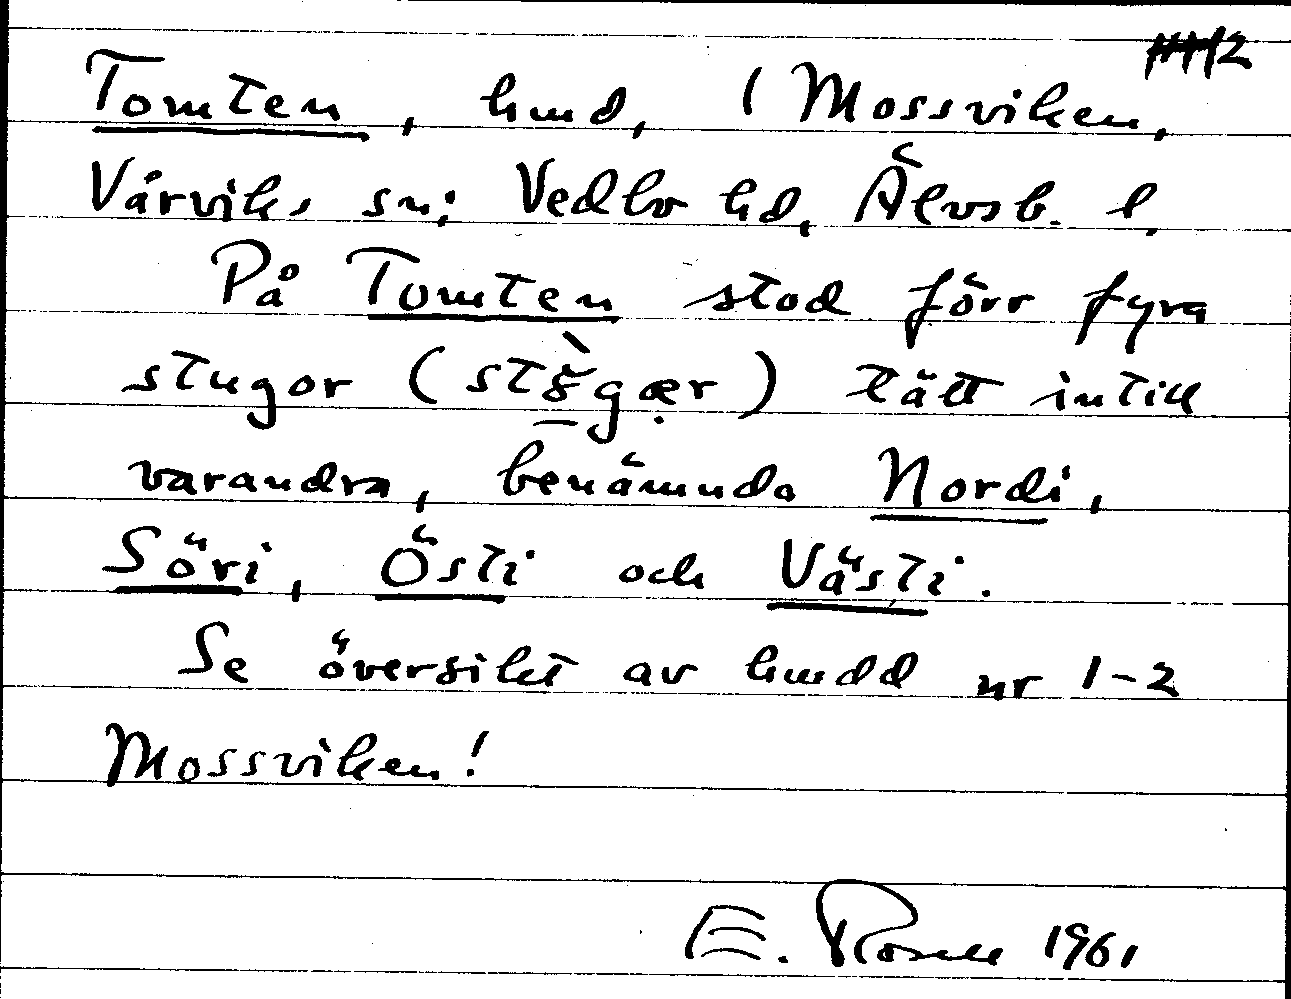 2
Tomten, hmd, 1 Mossviken,
Vårviks sn; Vedbo hd, Älvsb. l.
På Tomten stod förr fyra
stugor (                ) tätt intill
varandra, benämnda Nordi,
Söri, Östi och Västi.
Se översikt av hmdd nr 1-2
Mossviken!
E. Rosell 1961